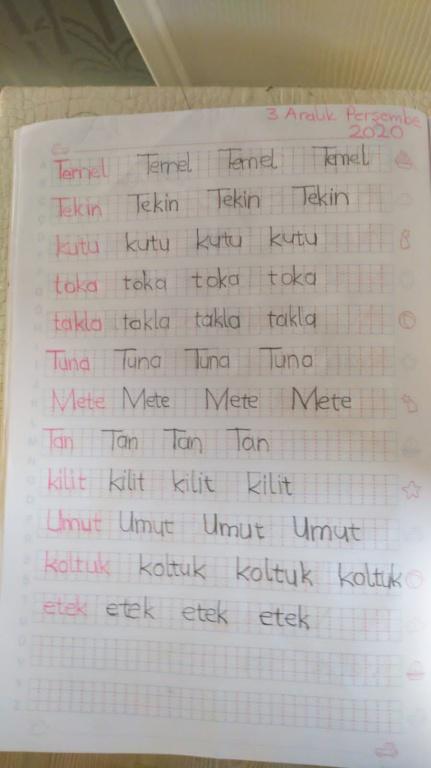 3 Aralık Perşembe
2020
Temel Temel Temel Temel
Tekin Tekin Tekin Tekin
kutu kutu kutu kutu
toka toka toka toka
takla takla takla takla
Tuna Tuna Tuna Tuna
Mete Mete Mete Mete
Tan Tan Tan Tan
kilit kilit kilit kilit
Umut Umut Umut Umut
koltuk koltuk koltuk koltuk
etek etek etek etek